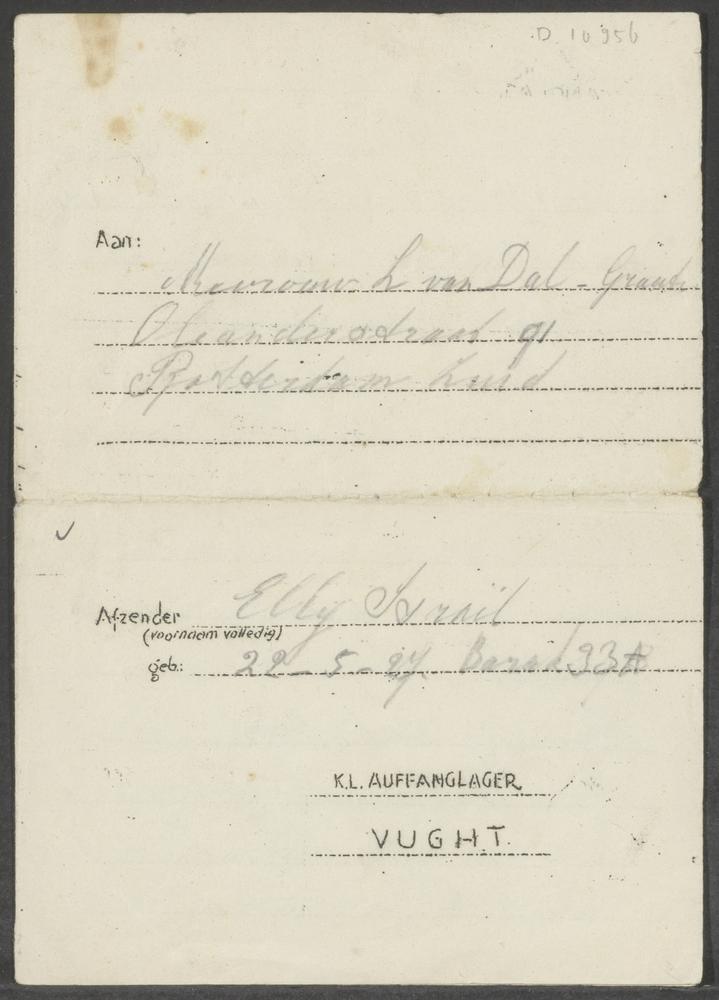 D 10956
Aan:
Mevrouw L van Dal - Groot
Oleanderstraat 91
Rotterdam Zuid
Afzender Elly Israël
(voornaam volledig)
geb.: 22-5-27. Barak 33A
K.L. AUFFANGLAGER
VUGHT.